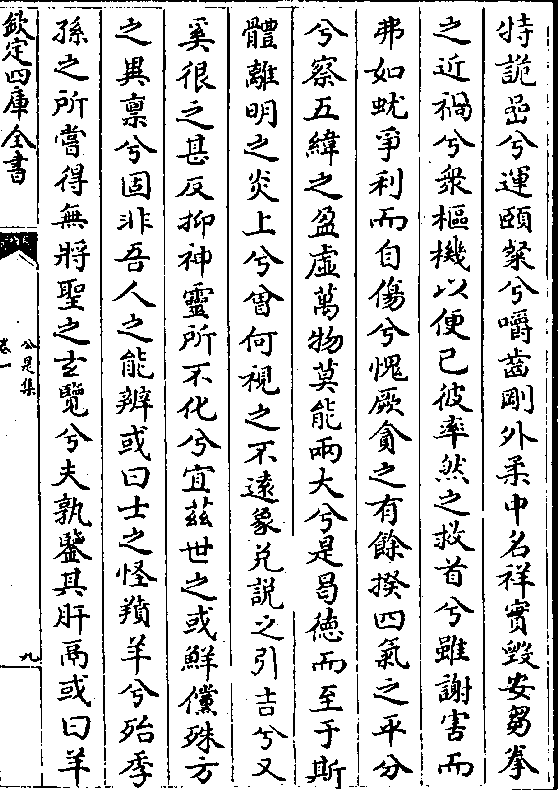 特詭嵒兮運頤粲兮嚼齒剛外柔中名祥實毀安芻豢
之近禍兮衆樞機以便己彼率然之救首兮雖謝害而
弗如蚘爭利而自傷兮愧厥貪之有餘揆四氣之平分
兮察五緯之盈虛萬物莫能兩大兮是曷徳而至于斯
體離明之炎上兮曾何視之不逺象兌説之引吉兮又
奚很之甚反抑神靈所不化兮宜茲世之或鮮儻殊方
之異禀兮固非吾人之能辨或曰士之怪羵羊兮殆季
孫之所嘗得無將聖之玄覽兮夫孰鑒其肝鬲或曰羊
欽定四庫全書
公是集
卷一
九